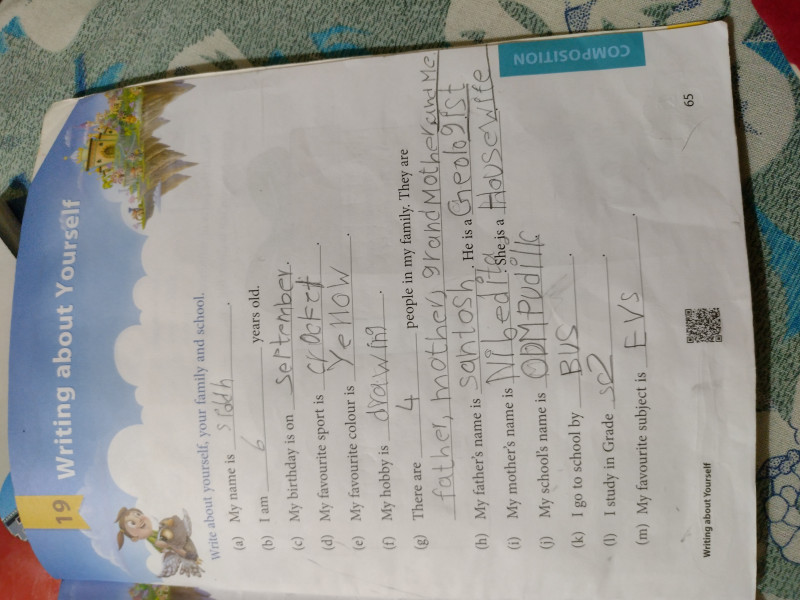 19 Writing about Yourself
COMPOSITION
Write about yourself, your family and school.
(a) My name is siddh.
(b) I am 6 years old.
(c) My birthday is on september.
(d) My favourite sport is crocket.
(e) My favourite colour is Yellow.
(f) My hobby is drawing.
(g) There are 4 people in my family. They are
father, mother, grandMother and Me
(h) My father's name is santosh. He is a Gheologist
(i) My mother's name is Nibedita. She is a Housewife
(j) My school's name is ODMPudilk
(k) I go to school by BUS.
(l) I study in Grade 2.
(m) My favourite subject is EVS.
Writing about Yourself
65